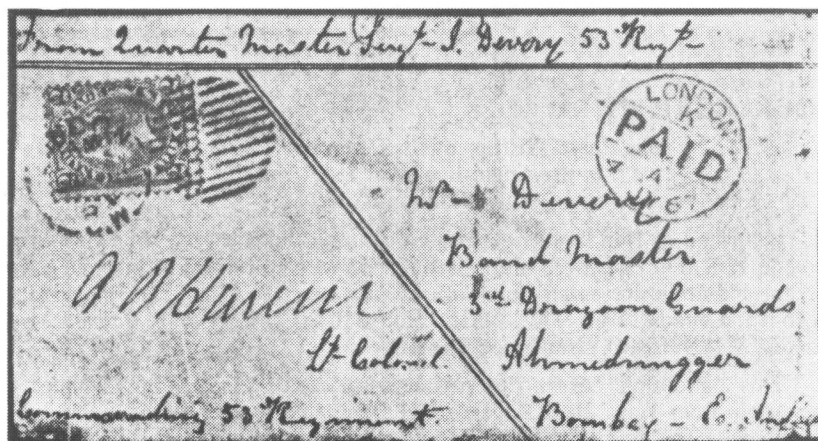 From Quarter Master Sergt - J. Devory 53 Regt
LONDON
K
PAID
4 A
67
Mr - Devory
Band Master
3rd Dragoon Guards
Ahmednugger
Bombay - Es. India
Lt Colonel
Commanding 53 Regiment.